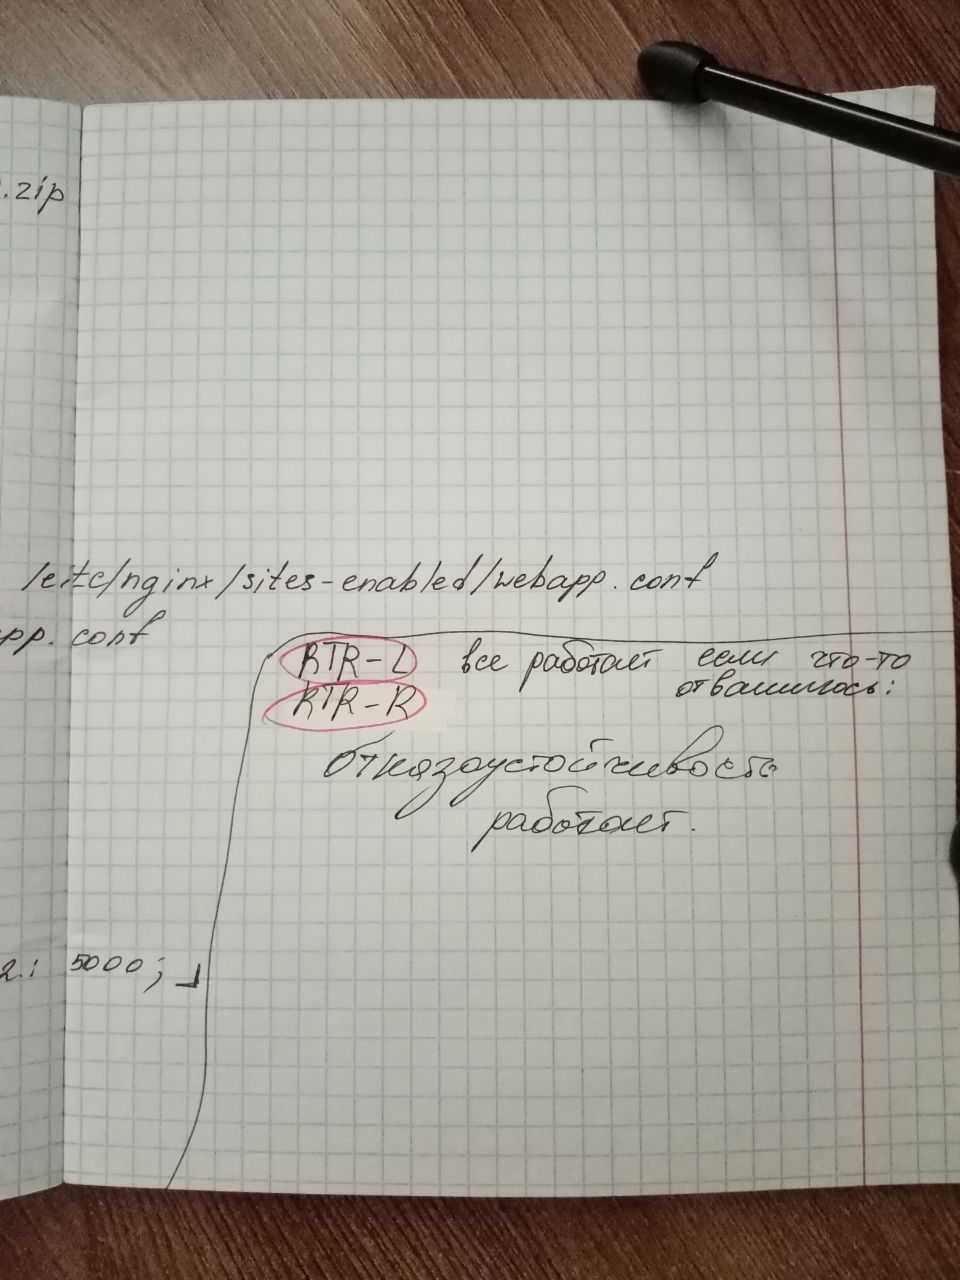 .zip
/eitc/nginx/sites-enabled/webapp.conf
pp. conf
RTR-L все работает если что-то
отвалилось:
RTR-R
Отказоустойчивость
работает.
2.: 5000;